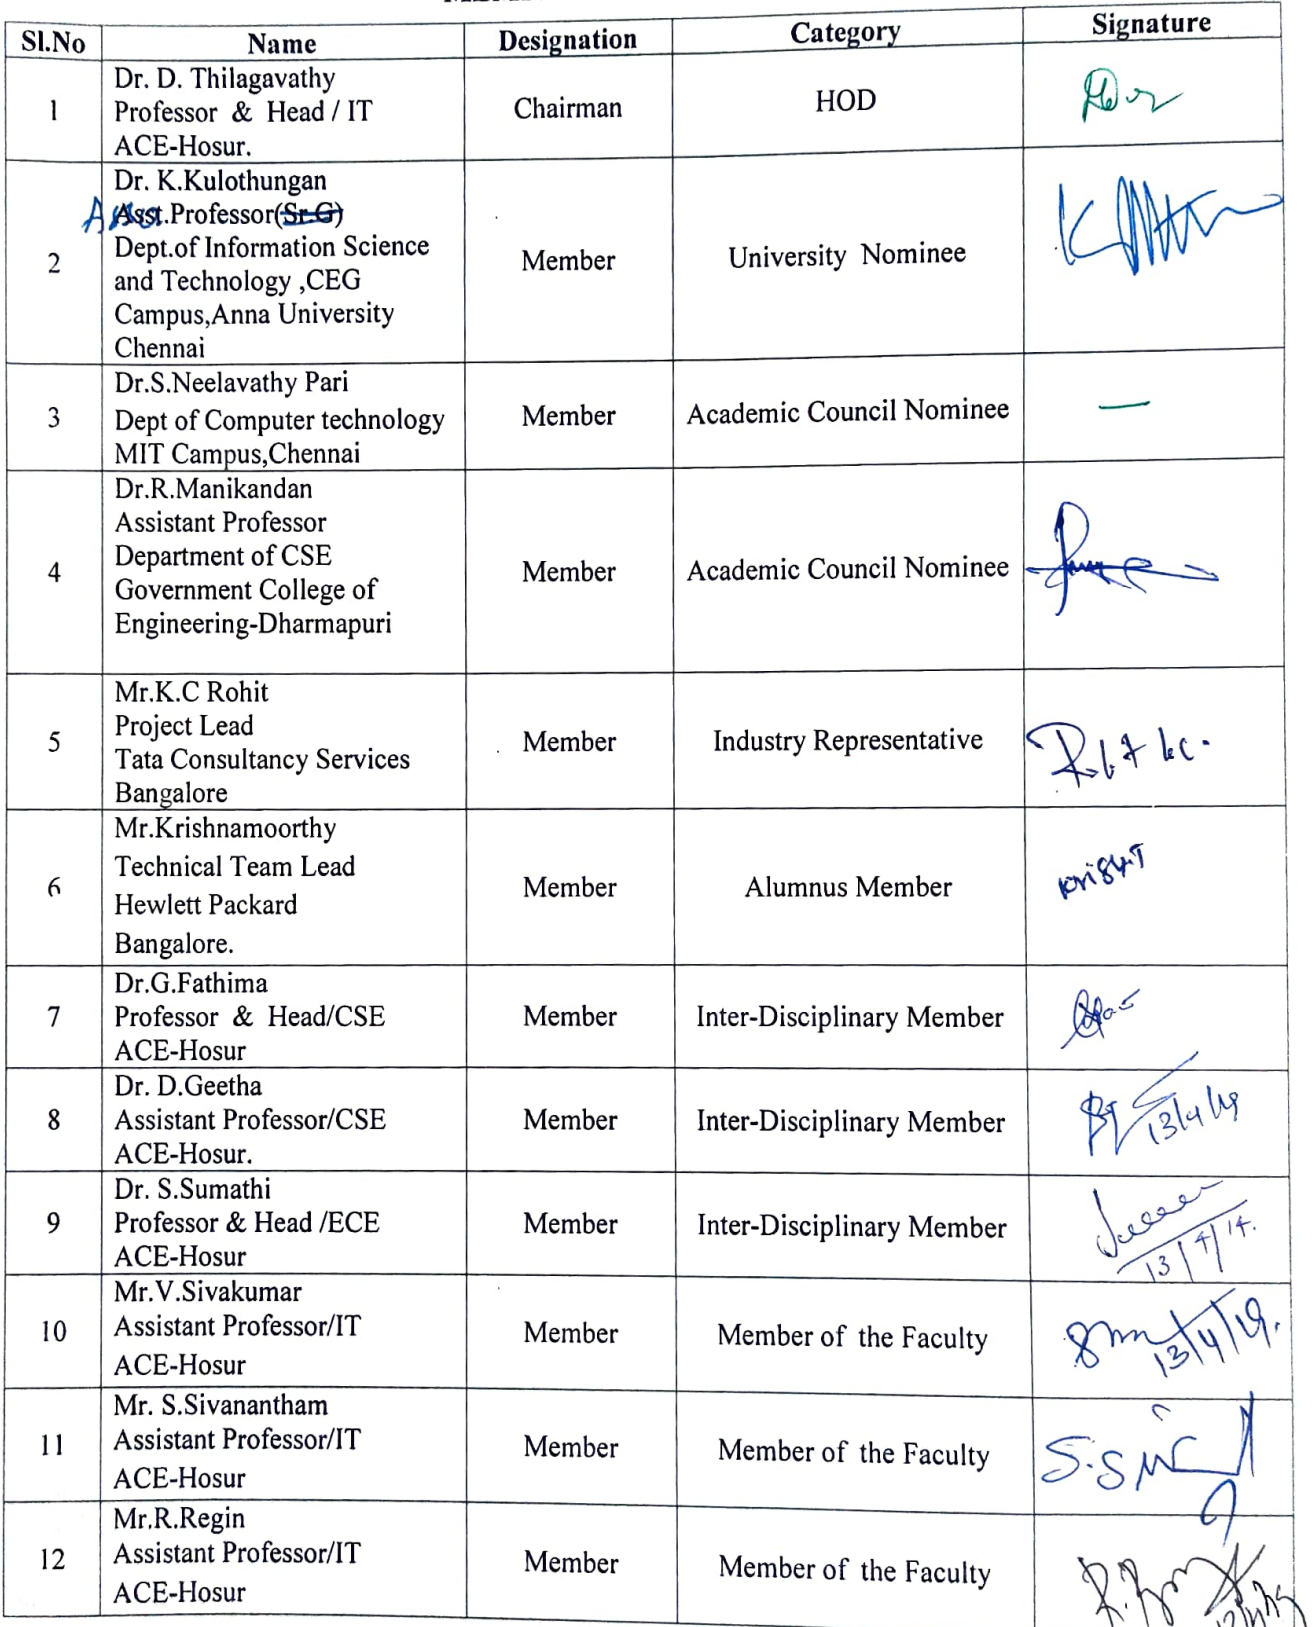 Sl.No Name Designation Category Signature
1
Dr. D. Thilagavathy
Professor & Head / IT
ACE-Hosur.
Chairman
HOD
2
Dr. K.Kulothungan
Asst.Professor(Sr.G)
Dept.of Information Science
and Technology ,CEG
Campus,Anna University
Chennai
Member
University Nominee
3
Dr.S.Neelavathy Pari
Dept of Computer technology
MIT Campus,Chennai
Member
Academic Council Nominee
—
4
Dr.R.Manikandan
Assistant Professor
Department of CSE
Government College of
Engineering-Dharmapuri
Member
Academic Council Nominee
5
Mr.K.C Rohit
Project Lead
Tata Consultancy Services
Bangalore
Member
Industry Representative
6
Mr.Krishnamoorthy
Technical Team Lead
Hewlett Packard
Bangalore.
Member
Alumnus Member
7
Dr.G.Fathima
Professor & Head/CSE
ACE-Hosur
Member
Inter-Disciplinary Member
8
Dr. D.Geetha
Assistant Professor/CSE
ACE-Hosur.
Member
Inter-Disciplinary Member
13/4/19
9
Dr. S.Sumathi
Professor & Head /ECE
ACE-Hosur
Member
Inter-Disciplinary Member
13/4/19.
10
Mr.V.Sivakumar
Assistant Professor/IT
ACE-Hosur
Member
Member of the Faculty
13/4/19.
11
Mr. S.Sivanantham
Assistant Professor/IT
ACE-Hosur
Member
Member of the Faculty
12
Mr.R.Regin
Assistant Professor/IT
ACE-Hosur
Member
Member of the Faculty